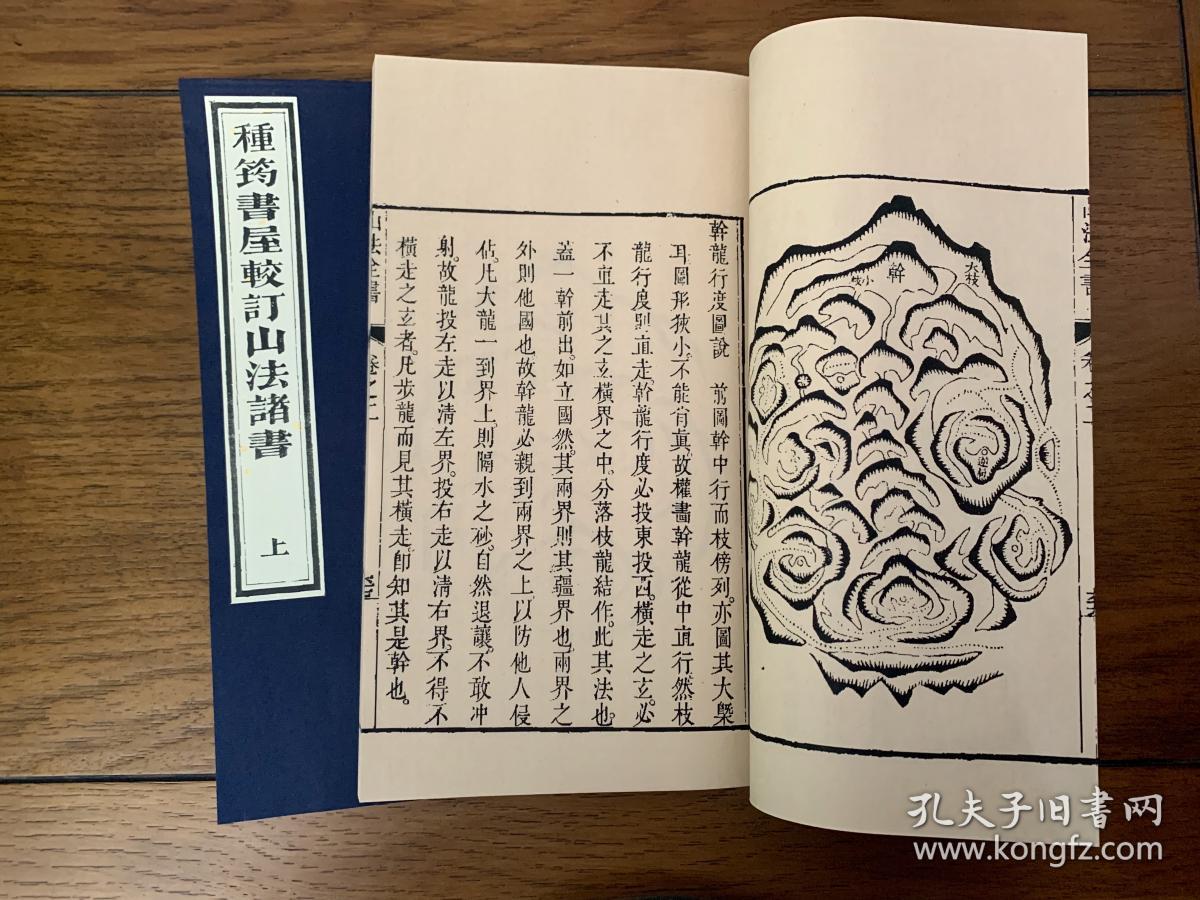 種筠書屋較訂山法諸書
上
幹龍行度圖說 前圖幹中行而枝傍列亦圖其大槩
耳圖形狹小不能肯眞故權畵幹龍從中直行然枝
龍行度則直走幹龍行度必投東投西橫走之玄必
不直走其之玄橫界之中分落枝龍結作此其法也
蓋一幹前出如立國然其兩界則其疆界也兩界之
外則他國也故幹龍必親到兩界之上以防他人侵
佔凡大龍一到界上則隔水之砂自然退讓不敢冲
射故龍投左走以清左界投右走以清右界不得不
橫走之玄者凡步龍而見其橫走卽知其是幹也
山法全書
卷之二
幹
小枝
大枝
孔夫子旧书网
www.kongfz.com